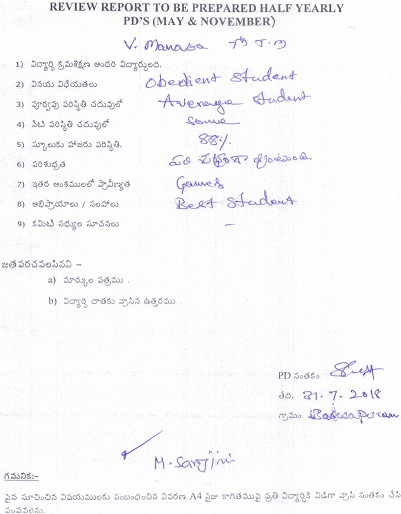 REVIEW REPORT TO BE PREPARED HALF YEARLY
PD'S (MAY & NOVEMBER)
V. Manasa 7th
1) విద్యార్థి క్రమశిక్షణ అందరి విద్యార్థులది.
2) వినయ విధేయతలు Obedient Student
3) పూర్వపు పరిస్థితి చదువులో Average Student
4) నేటి పరిస్థితి చదువులో Same
5) స్కూలుకు హాజరు పరిస్థితి. 88%
6) పరిశుభ్రత
7) ఇతర అంశములలో ప్రావీణ్యత Games
8) అభిప్రాయాలు / సలహాలు Best Student
9) కమిటీ సభ్యుల సూచనలు –
జతపరచవలసినవి –
a) మార్కుల పత్రము .
b) విద్యార్థి దాతకు వ్రాసిన ఉత్తరము .
PD సంతకం
తేది. 31.7.2018
గ్రామం
M. Sarojini
గమనిక:-
పైన సూచించిన విషయములకు సంబంధించిన వివరణ A4 సైజు కాగితముపై ప్రతి విద్యార్థికి విడిగా వ్రాసి సంతకం చేసి
పంపవలెను.